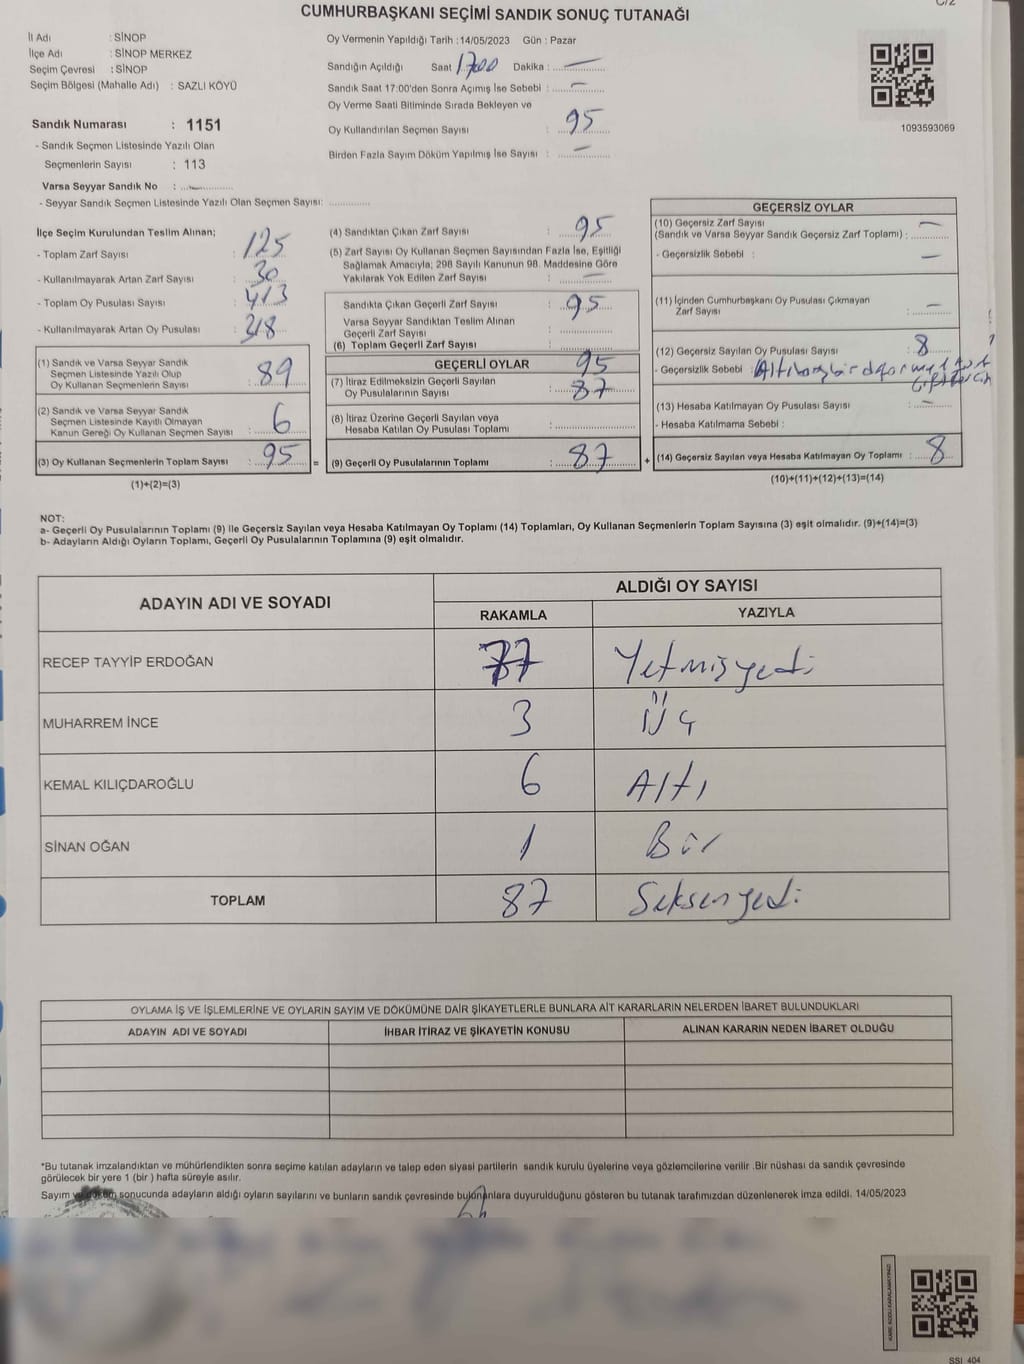 C/2
CUMHURBAŞKANI SEÇİMİ SANDIK SONUÇ TUTANAĞI
İl Adı : SİNOP
İlçe Adı : SİNOP MERKEZ
Seçim Çevresi : SİNOP
Seçim Bölgesi (Mahalle Adı) : SAZLI KÖYÜ
Sandık Numarası : 1151
- Sandık Seçmen Listesinde Yazılı Olan
Seçmenlerin Sayısı : 113
Varsa Seyyar Sandık No :
- Seyyar Sandık Seçmen Listesinde Yazılı Olan Seçmen Sayısı:
Oy Vermenin Yapıldığı Tarih :14/05/2023 Gün : Pazar
Sandığın Açıldığı Saat 1700 Dakika : —
Sandık Saat 17:00'den Sonra Açımış İse Sebebi : —
Oy Verme Saati Bitiminde Sırada Bekleyen ve
Oy Kullandırılan Seçmen Sayısı : 95
Birden Fazla Sayım Döküm Yapılmış İse Sayısı : —
1093593069
İlçe Seçim Kurulundan Teslim Alınan;
- Toplam Zarf Sayısı : 125
- Kullanılmayarak Artan Zarf Sayısı : 30
- Toplam Oy Pusulası Sayısı : 413
- Kullanılmayarak Artan Oy Pusulası : 318
(1) Sandık ve Varsa Seyyar Sandık
Seçmen Listesinde Yazılı Olup
Oy Kullanan Seçmenlerin Sayısı : 89
(2) Sandık ve Varsa Seyyar Sandık
Seçmen Listesinde Kayıtlı Olmayan
Kanun Gereği Oy Kullanan Seçmen Sayısı : 6
(3) Oy Kullanan Seçmenlerin Toplam Sayısı : 95 =
(1)+(2)=(3)
(4) Sandıktan Çıkan Zarf Sayısı : 95
(5) Zarf Sayısı Oy Kullanan Seçmen Sayısından Fazla İse, Eşitliği
Sağlamak Amacıyla; 298 Sayılı Kanunun 98. Maddesine Göre
Yakılarak Yok Edilen Zarf Sayısı : —
Sandıkta Çıkan Geçerli Zarf Sayısı : 95
Varsa Seyyar Sandıktan Teslim Alınan
Geçerli Zarf Sayısı :
(6) Toplam Geçerli Zarf Sayısı :
GEÇERLİ OYLAR 95
(7) İtiraz Edilmeksizin Geçerli Sayılan
Oy Pusulalarının Sayısı : 87
(8) İtiraz Üzerine Geçerli Sayılan veya
Hesaba Katılan Oy Pusulası Toplamı :
(9) Geçerli Oy Pusulalarının Toplamı : 87 +
GEÇERSİZ OYLAR
(10) Geçersiz Zarf Sayısı —
(Sandık ve Varsa Seyyar Sandık Geçersiz Zarf Toplamı) :
- Geçersizlik Sebebi : —
(11) İçinden Cumhurbaşkanı Oy Pusulası Çıkmayan
Zarf Sayısı : —
(12) Geçersiz Sayılan Oy Pusulası Sayısı : 8
- Geçersizlik Sebebi :
(13) Hesaba Katılmayan Oy Pusulası Sayısı : —
- Hesaba Katılmama Sebebi :
(14) Geçersiz Sayılan veya Hesaba Katılmayan Oy Toplamı : 8
(10)+(11)+(12)+(13)=(14)
NOT:
a- Geçerli Oy Pusulalarının Toplamı (9) ile Geçersiz Sayılan veya Hesaba Katılmayan Oy Toplamı (14) Toplamları, Oy Kullanan Seçmenlerin Toplam Sayısına (3) eşit olmalıdır. (9)+(14)=(3)
b- Adayların Aldığı Oyların Toplamı, Geçerli Oy Pusulalarının Toplamına (9) eşit olmalıdır.
ADAYIN ADI VE SOYADI
ALDIĞI OY SAYISI
RAKAMLA YAZIYLA
RECEP TAYYİP ERDOĞAN 77 Yetmiş yedi
MUHARREM İNCE 3 Üç
KEMAL KILIÇDAROĞLU 6 Altı
SİNAN OĞAN 1 Bir
TOPLAM 87 Seksen yedi
OYLAMA İŞ VE İŞLEMLERİNE VE OYLARIN SAYIM VE DÖKÜMÜNE DAİR ŞİKAYETLERLE BUNLARA AİT KARARLARIN NELERDEN İBARET BULUNDUKLARI
ADAYIN ADI VE SOYADI İHBAR İTİRAZ VE ŞİKAYETİN KONUSU ALINAN KARARIN NEDEN İBARET OLDUĞU
*Bu tutanak imzalandıktan ve mühürlendikten sonra seçime katılan adayların ve talep eden siyasi partilerin sandık kurulu üyelerine veya gözlemcilerine verilir .Bir nüshası da sandık çevresinde
görülecek bir yere 1 (bir ) hafta süreyle asılır.
Sayım ve döküm sonucunda adayların aldığı oyların sayılarını ve bunların sandık çevresinde bulunanlara duyurulduğunu gösteren bu tutanak tarafımızdan düzenlenerek imza edildi. 14/05/2023
KARE KODU KARALAMAYINIZ!
SSİ 404